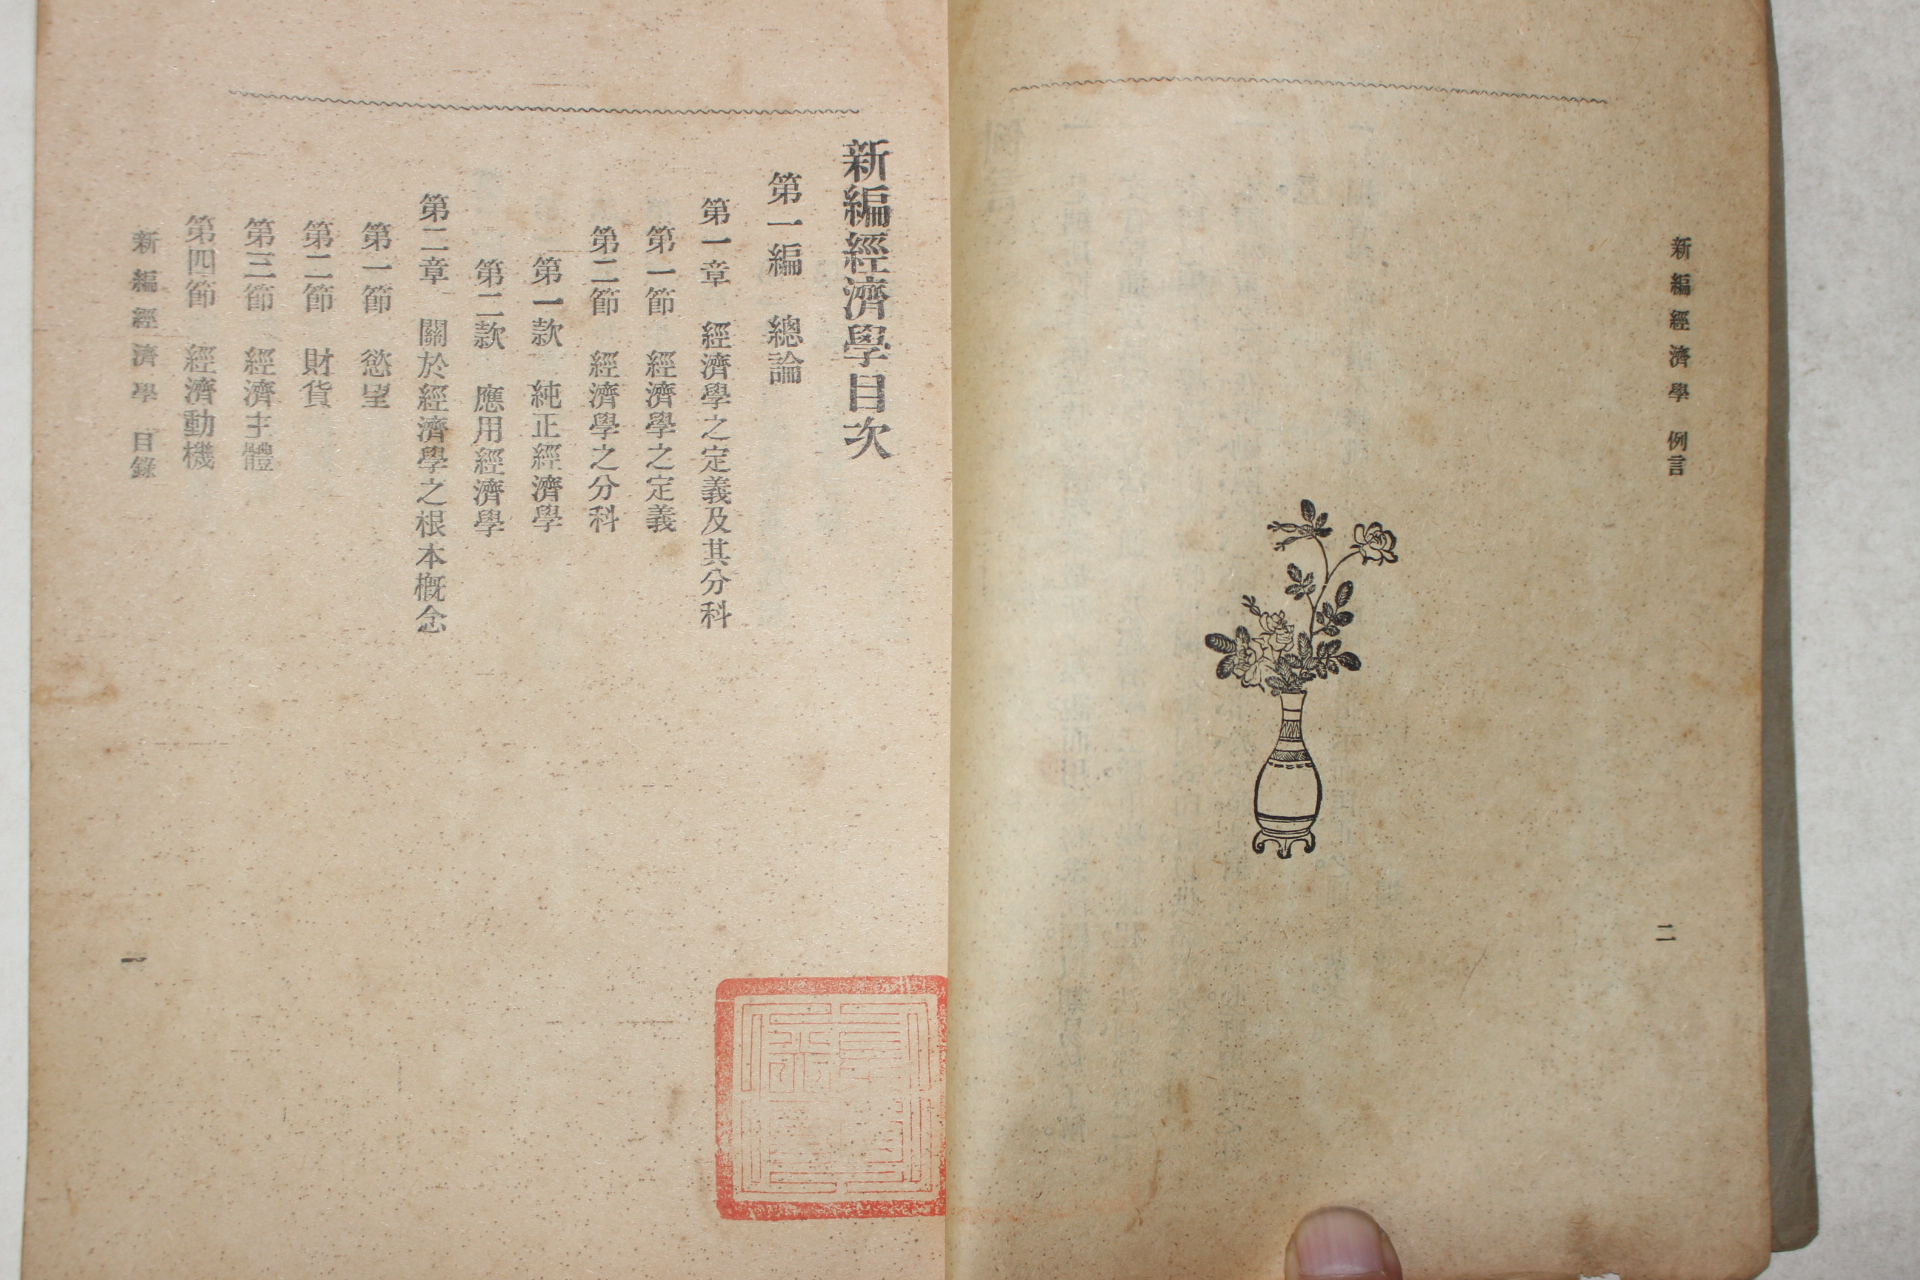 新編經濟學 例言
二
新編經濟學目次
第一編 總論
第一章 經濟學之定義及其分科
第一節 經濟學之定義
第二節 經濟學之分科
第一款 純正經濟學
第二款 應用經濟學
第二章 關於經濟學之根本概念
第一節 慾望
第二節 財貨
第三節 經濟主體
第四節 經濟動機
新編經濟學 目錄
一